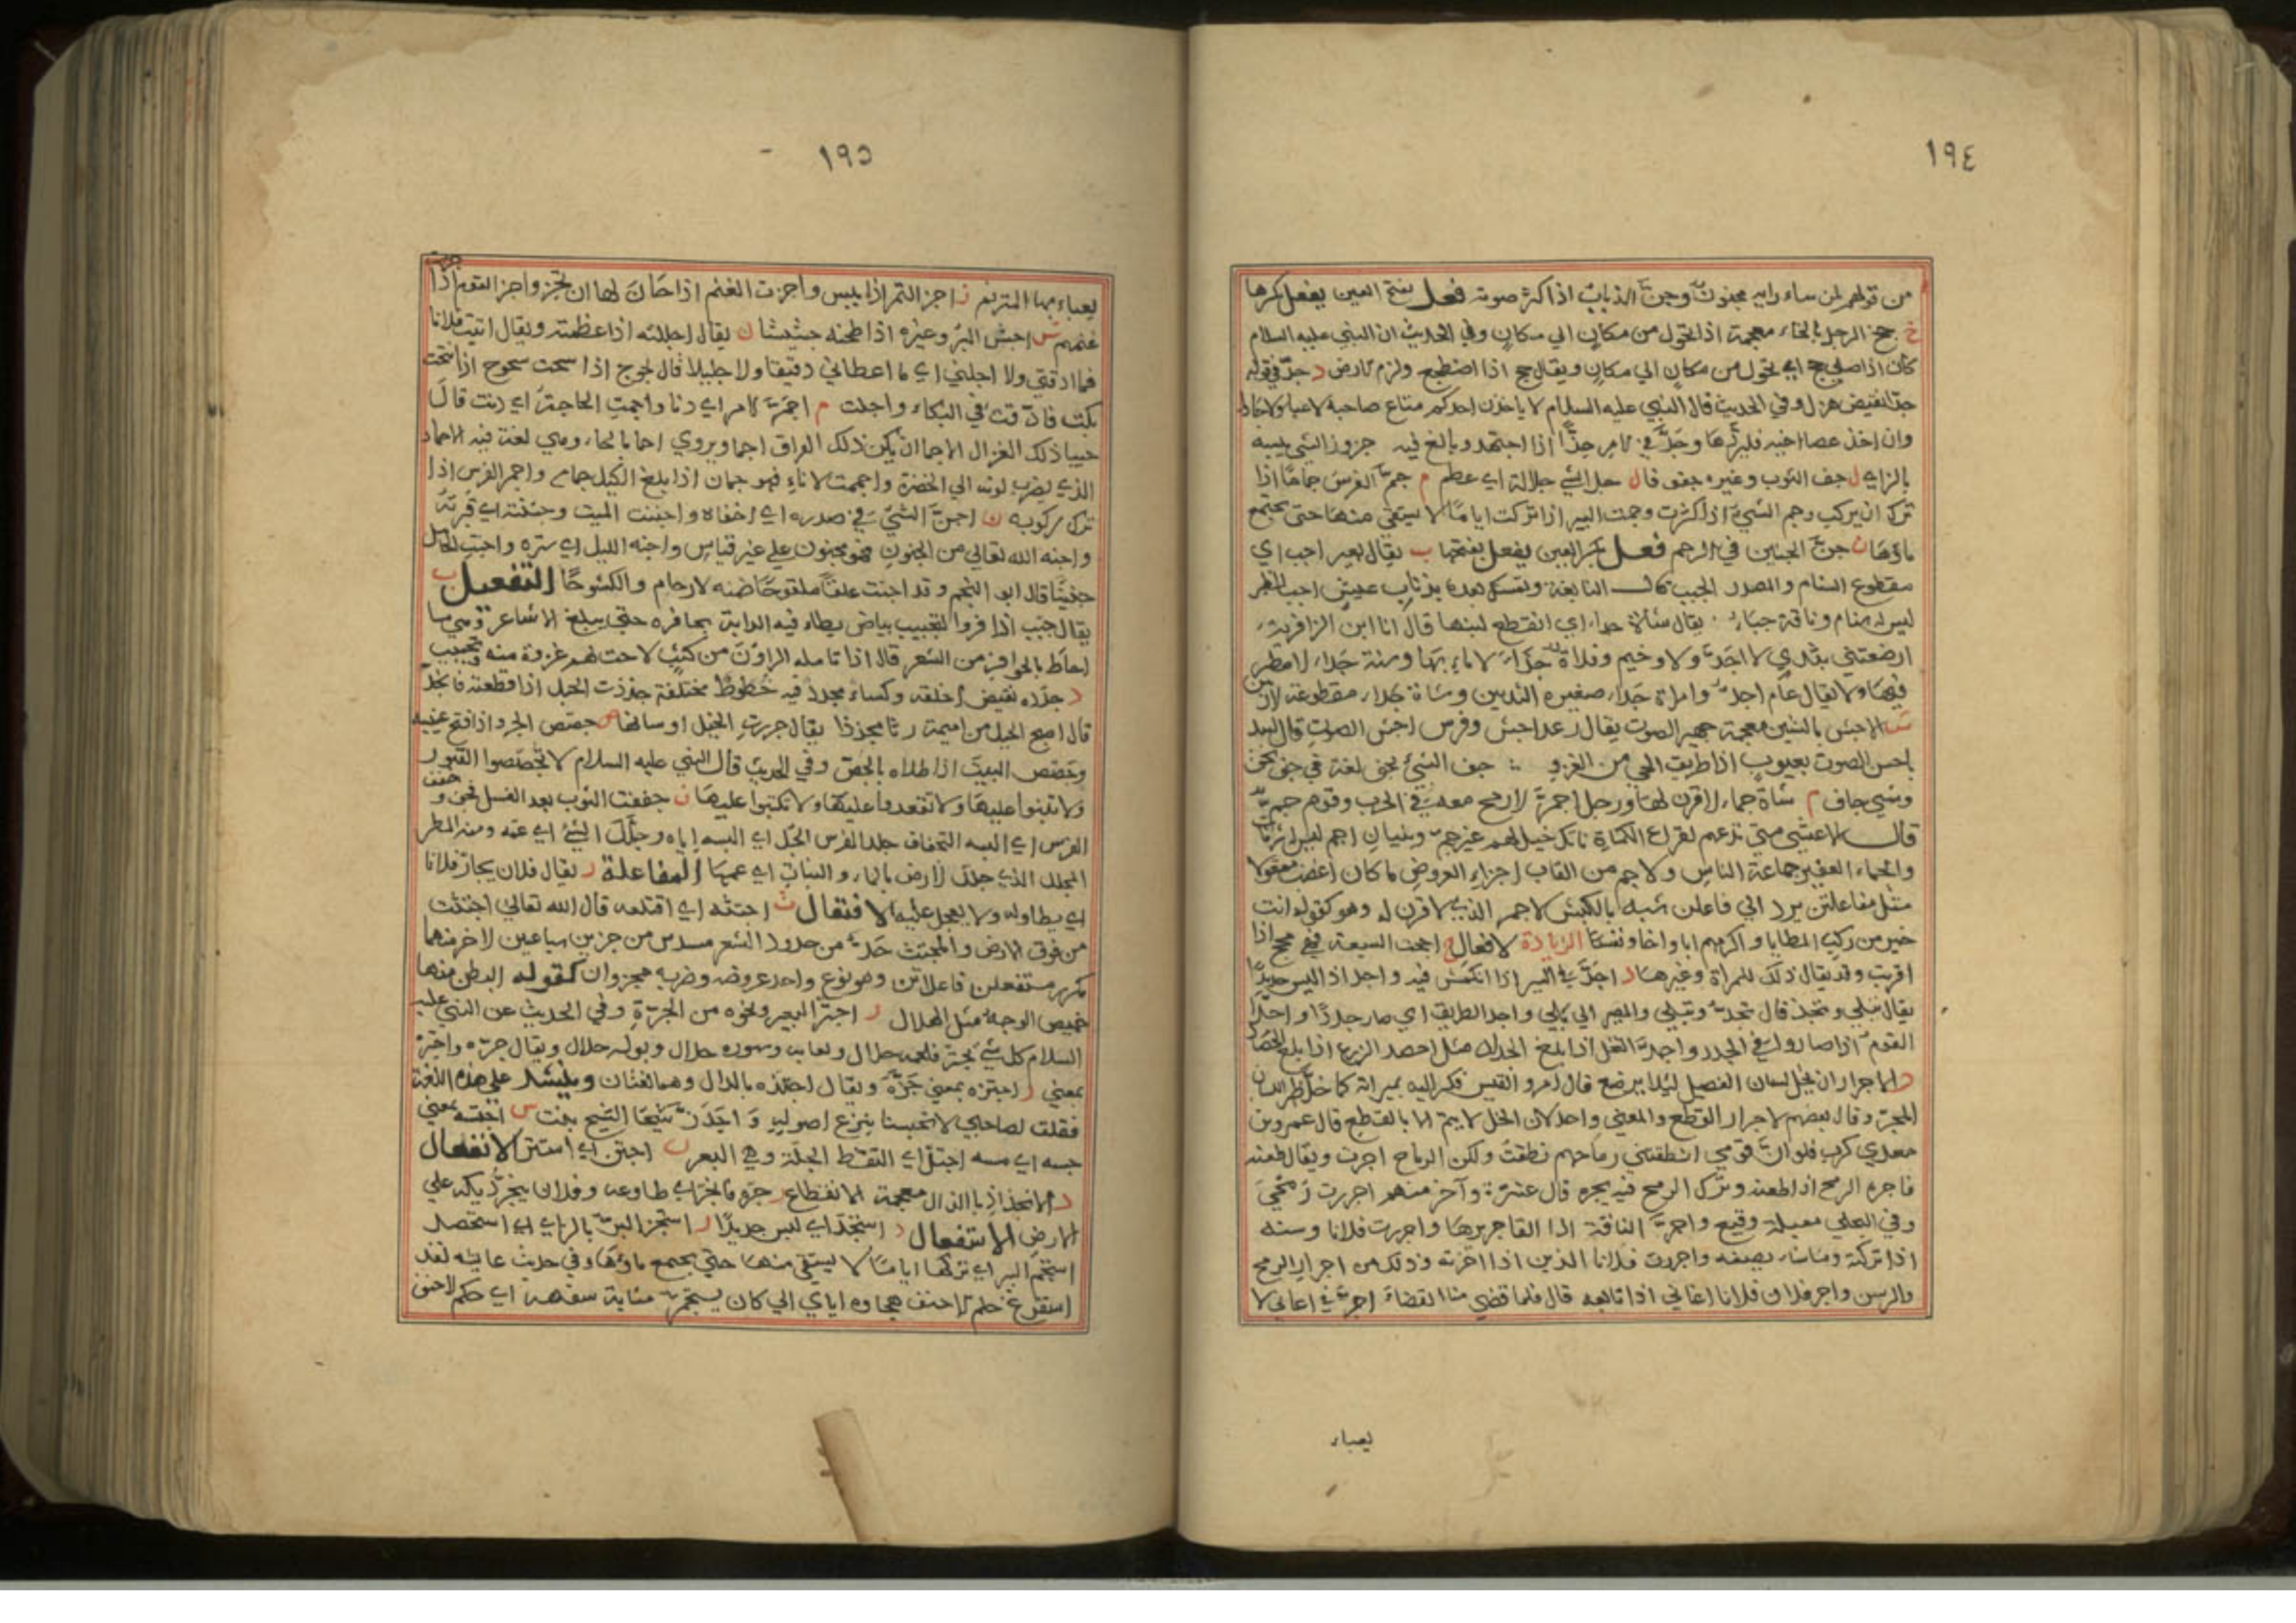 ١٩٤
من قولهم لمن ساء رايه مجنون وجن الذباب اذا كثر صوته فعل بفتح العين يفعل بكسرها
خ جخ الرجل بالخاء معجمة اذا تحول من مكان الي مكان وفي الحديث ان النبي عليه السلام
كان اذا صلي جخ اي تحول من مكان الي مكان ويقال جخ اذا اضطجع ولزم الارض د جد في قوله
جدا نقيض هزل وفي الحديث قال النبي عليه السلام لا ياخذن احدكم متاع صاحبه لاعبا ولا جادا
وان اخذ عصا اخيه فليردها وجد في الامر جدا اذا اجتهد وبالغ فيه جزوز الشي يبسه
بالزاي ل جف الثوب وغيره جفو فا ل جل الشي جلالة اي عظم م جم الفرس جماما اذا
ترك ان يركب وجم الشي اذا كثرت وجمت البير اذا تركت اياما لا يستقي منها حتي يجتمع
ماؤها ن جن الجنين في الرحم فعل بكسر العين يفعل بفتحها ب يقال بعير اجب اي
مقطوع السنام والمصدر الجبب قال النابغة ونمسك بعده بذناب عيش اجب الظهر
ليس له سنام وناقة جباء يقال شاة جداء اي انقطع لبنها قال انا ابن الزافرية
ارضعتني بثدي لا اجد ولا وخيم وفلاة جداء لا ماء بها وسنة جداء لا مطر
فيها ولا يقال عام اجد وامراة جداء صغيرة الثديين وشاة جداء مقطوعة الاذنين
ش الاجش بالشين معجمة جهير الصوت يقال رعد اجش وفرس اجش الصوت قال لبيد
باجش الصوت يعبوب اذا طرق الحي من الغزو جف الشي يجف لغة في جف يجف
وشي جاف م شاة جماء لا قرن لها ورجل اجم لا رمح معه في الحرب وقوم جم
قال الاعشي متي تدعهم لقراع الكماة تاتك خيل لهم غير جم وبنيان اجم ليس له شرفات
والجماء الغفير جماعة الناس والاجم من القاب اجزاء العروض ما كان اعضب معقولا
مثل مفاعلتن يرد الي فاعلن شبه بالكبش الاجم الذي لا قرن له وهو كقوله انت
خير من ركب المطايا واكرمهم ابا واخا ونفسا الزيادة الافعال ح اجحت السبعة فهي مجح اذا
اقربت وقد يقال ذلك للمراة وغيرها د اجد في السير اذا انكمش فيه واجد اذا لبس جديدا
يقال تبلي وتجد قال تجد وتبلي والمصير الي بلي واجد الطريق اي صار جددا واجد
القوم اذا صاروا في الجدد واجد النخل اذا بلغ الجداد مثل احصد الزرع اذا بلغ الحصاد
ر الاجرار ان يخل لسان الفصيل ليلا يرضع قال امرو القيس فكر اليه بمبراته كما خل ظهر اللسان
المجر وقال بعضهم الاجرار القطع والمعني واحد لان الخل لا يتم الا بالقطع قال عمرو بن
معدي كرب فلو ان قومي انطقتني رماحهم نطقت ولكن الرماح اجرت ويقال طعنه
فاجره الرمح اذا طعنه وترك الرمح فيه يجره قال عنترة وآخر منهم اجررت رمحي
وفي البجلي معبلة وقيع واجرت الناقة اذا القا جريرها واجررت فلانا وسنه
اذا تركته وما شاء يصنعه واجررت فلانا الدين اذا اخرته وذلك من اجرار الرمح
والرسن واجر فلان فلانا اغاني اذا تابعه قال فلما قضي منا القضاء اجرني اغاني لا
يعباء
١٩٥
يعباء بها المترنم ز اجز التمر اذا يبس واجزت الغنم اذا حان لها ان تجز واجز القوم اذا جزت
غنمهم ش اجش البر وغيره اذا طحنه جشيشا ل يقال اجللته اذا عظمته ويقال اتيت فلانا
فما ادقني ولا اجلني اي ما اعطاني دقيقا ولا جليلا قال لجوج اذا سحت سحوح اذا انتحت
بكت فادقت في البكاء واجلت م اجم الامر اي دنا واجمت الحاجة اي دنت قال
حييا ذلك الغزال الاجما ان يكن ذلك الفراق اجما ويروي احما بالحاء وهي لغة فيه الاحمام
الذي يضرب لونه الي الخضرة واجممت الاناء فهو جمان اذا بلغ الكيل جمامه واجم الفرس اذا
ترك ركوبه ن اجن الشي في صدره اي اخفاه واجننت الميت وجننته اي قبرته
واجنه الله تعالي من الجنون فهو مجنون علي غير قياس واجنه الليل اي ستره واجنت الحامل
جنينا قال ابو النجم وقد اجنت علقا ملقوحا ضمنه الارحام والكشوحا التفعيل ب
يقال جبب اذا فر والتجبيب بياض يطاء فيه الدابة بحافره حتي يبلغ الاشاعر وهي ما
احاط بالحوافر من الشعر قال اذا تاملها الراون من كثب لاحت لهم غرة منه وتجبيب
د جدده نقيض اخلقه وكساء مجدد فيه خطوط مختلفة جذذت الحبل اذا قطعته فانجذ
قال اصبح الحبل من اميمة رثا مجذذا يقال جررت الحبل اوسالها ص جصص الجرو اذا فتح عينيه
وجصص البيت اذا طلاه بالجص وفي الحديث قال النبي عليه السلام لا تجصصوا القبور
ولا تبنوا عليها ولا تقعدوا عليها ولا تكتبوا عليها ف جففت الثوب بعد الغسل فجف وجفف
الفرس اي البسه التجفاف جلل الفرس الجل اي البسه اياه وجلل الشي اي عمه ومنه المطر
المجلل الذي جلل الارض بالماء والنبات اي عمها المفاعلة ر يقال فلان يجار فلانا
اي يطاوله ولا يعجل عليه الافتعال ث اجتثه اي اقتلعه قال الله تعالي اجتثت
من فوق الارض والمجتث حد من حدود الشعر مسدس من جزين سباعين لاخر منهما
مكرر مستفعلن فاعلاتن وهو نوع واحد عروضه وضربه مجزوان كقوله البطن منها
خميص الوجه مثل الهلال ر اجتر البعير ونحوه من الجرة وفي الحديث عن النبي عليه
السلام كل شي يجتر فلحمه حلال ولعابه وسوره حلال وبوله حلال ويقال جره واجتره
بمعني ز اجتزه بمعني جزه ويقال اجتذه بالدال وهما لغتان وينشد علي هذه اللغة
فقلت لصاحبي لا تحبسنا بنزع اصوله واجتز شيحا الشيح نبت س اجتسه بمعني
جسه اي مسه اجتل اي التقط الجلة وهي البعر ن اجتن اي استتر الانفعال
ذ الانجذاذ بالذال معجمة الانقطاع ر جره فانجر اي طاوعه وفلان ينجر ذيله علي
الارض الاستفعال د استجد اي لبس جديدا ز استجز البر بالزاي اي استحصد
استجم البير اي تركها اياما لا يستقي منها حتي يجتمع ماؤها وفي حديث عايشه لقد
استفرغ حلم الاحنف هجاوه اياي الي كان يستجم مثابة سفهه اي حلم الاحنف